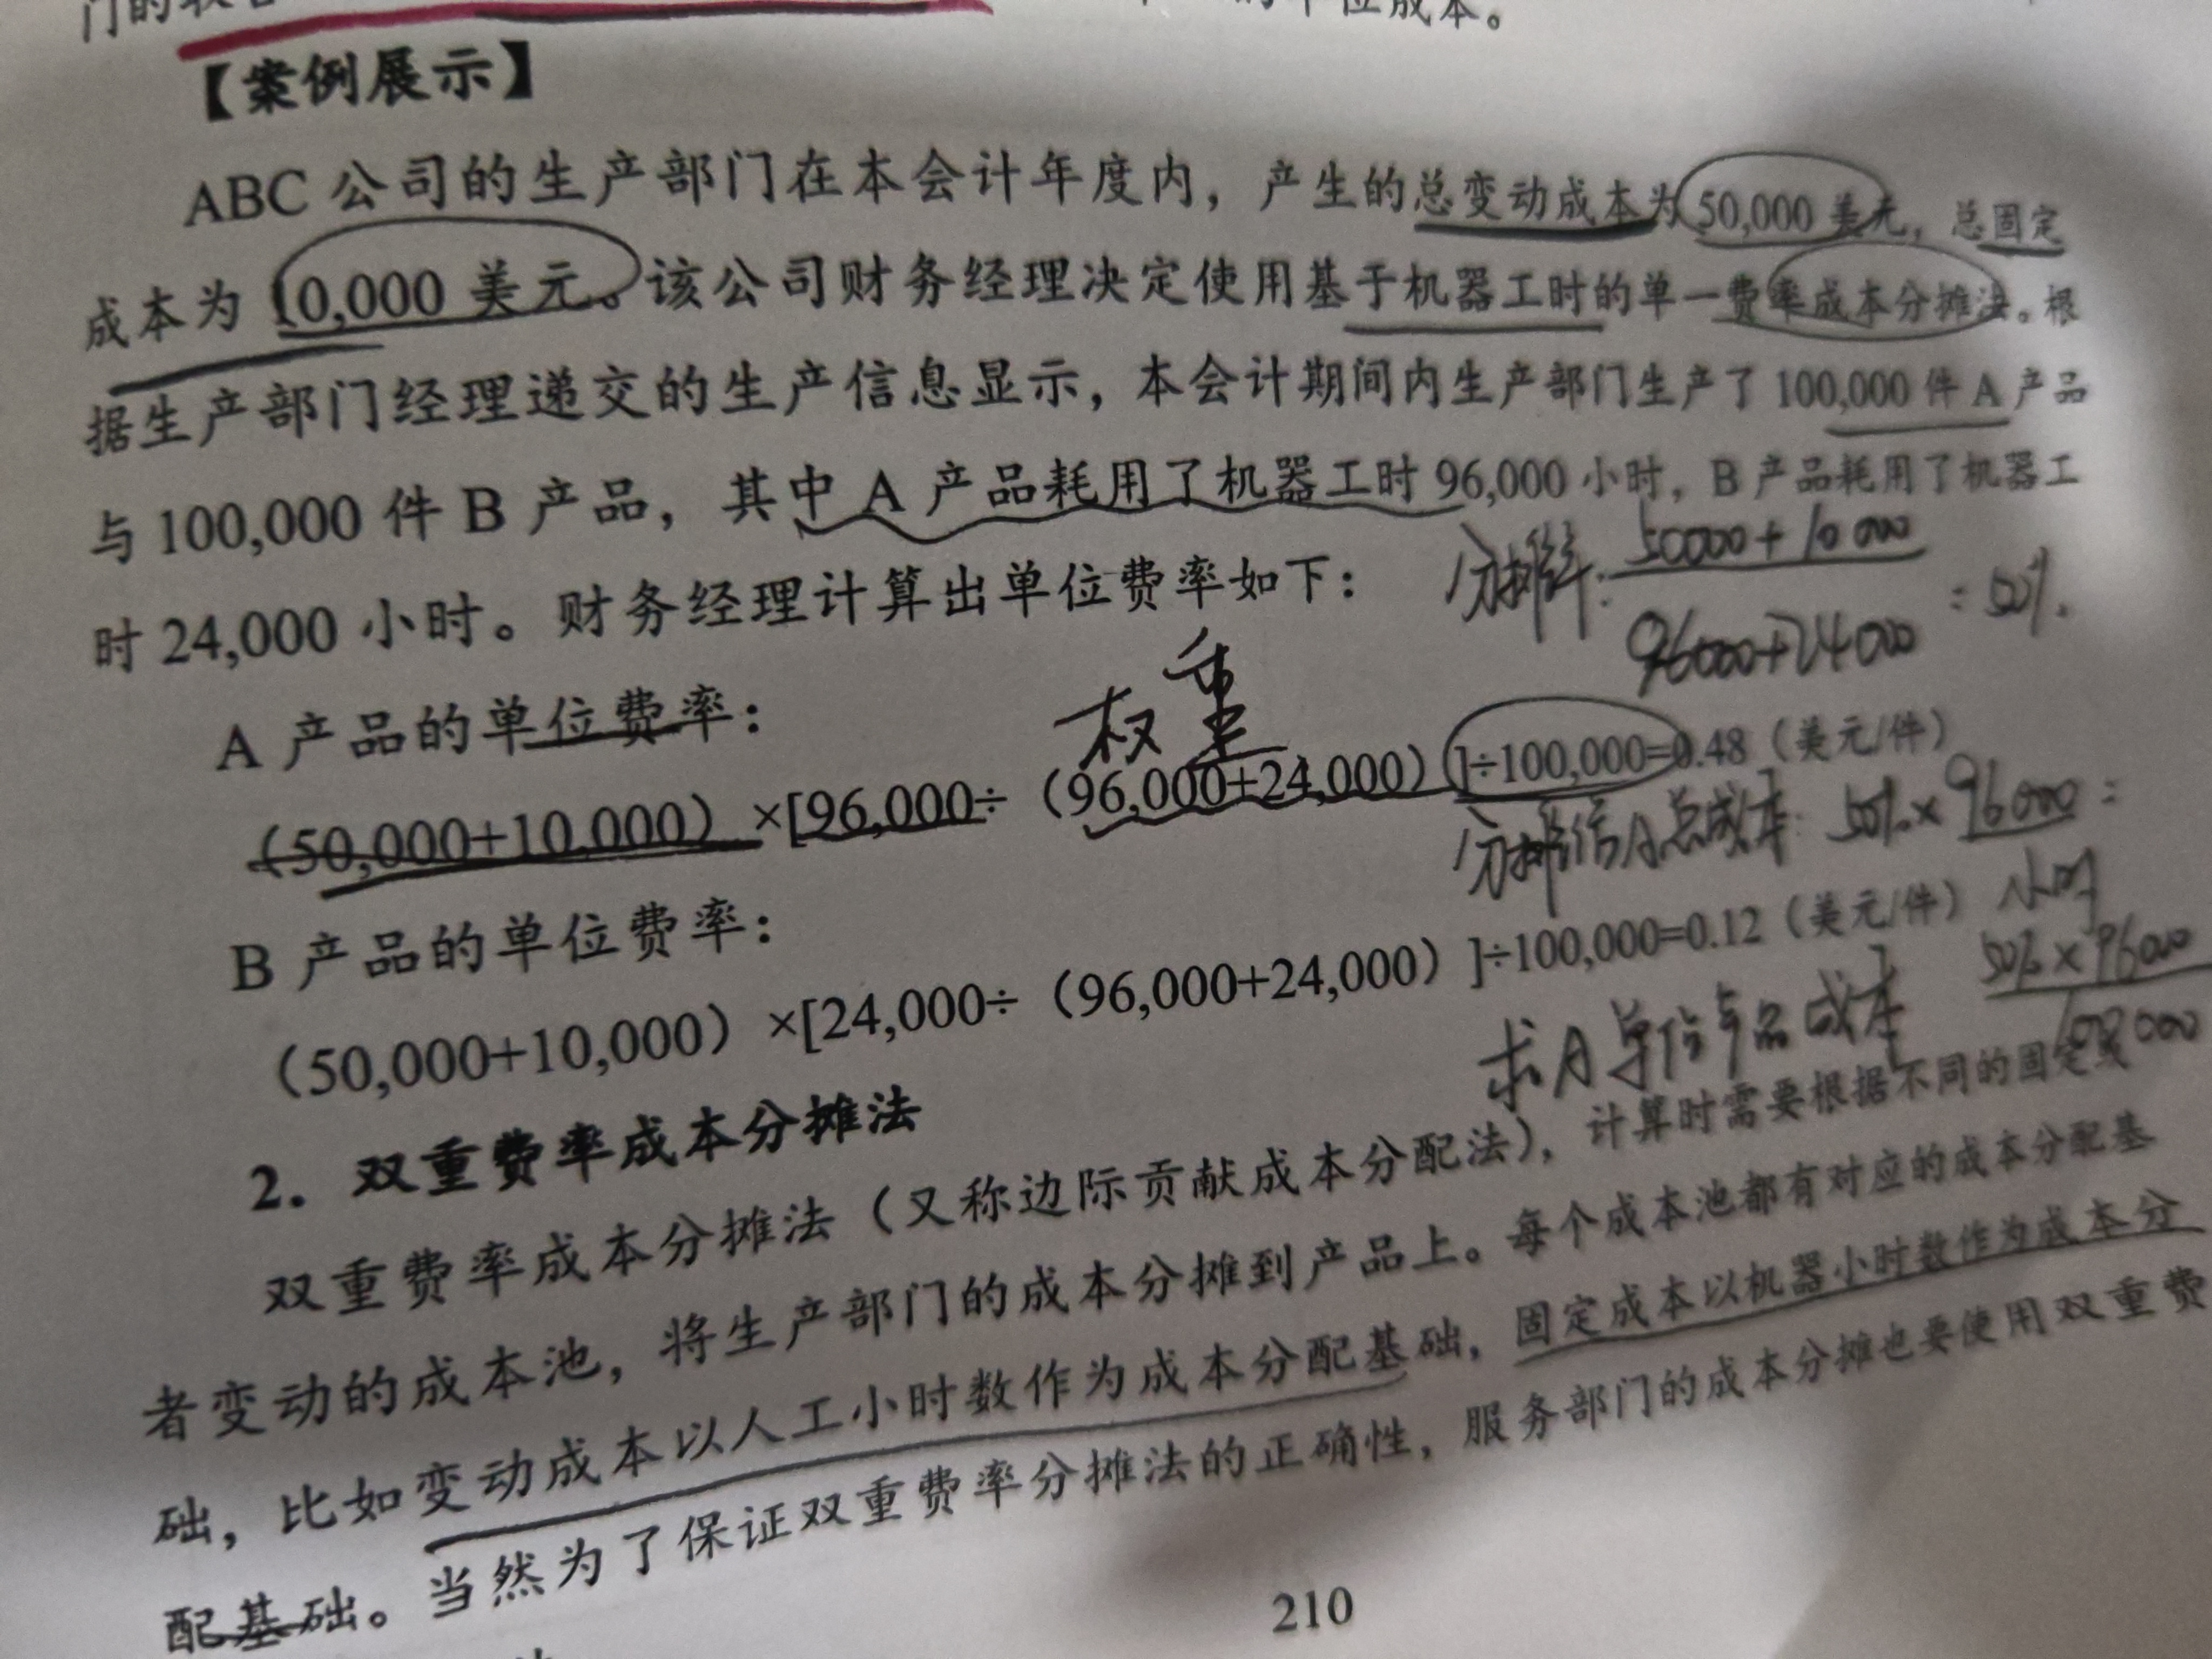 的单位成本。
【案例展示】
ABC 公司的生产部门在本会计年度内，产生的总变动成本为 50,000 美元，总固定
成本为 10,000 美元。该公司财务经理决定使用基于机器工时的单一费率成本分摊法。根
据生产部门经理递交的生产信息显示，本会计期间内生产部门生产了 100,000 件 A 产品
与 100,000 件 B 产品，其中 A 产品耗用了机器工时 96,000 小时，B 产品耗用了机器工
时 24,000 小时。财务经理计算出单位费率如下：
分摊率：
50000+10000
96000+24000
=50%.
A 产品的单位费率：
权重
（50,000+10,000）×[96,000÷（96,000+24,000）]÷100,000=0.48（美元/件）
分摊给A总成本：50%×96000=
小时
B 产品的单位费率：
（50,000+10,000）×[24,000÷（96,000+24,000）]÷100,000=0.12（美元/件）
求A单位产品成本
50%×96000
100000
2. 双重费率成本分摊法
双重费率成本分摊法（又称边际贡献成本分配法），计算时需要根据不同的固定或
者变动的成本池，将生产部门的成本分摊到产品上。每个成本池都有对应的成本分配基
础，比如变动成本以人工小时数作为成本分配基础，固定成本以机器小时数作为成本分
配基础。当然为了保证双重费率分摊法的正确性，服务部门的成本分摊也要使用双重费
210